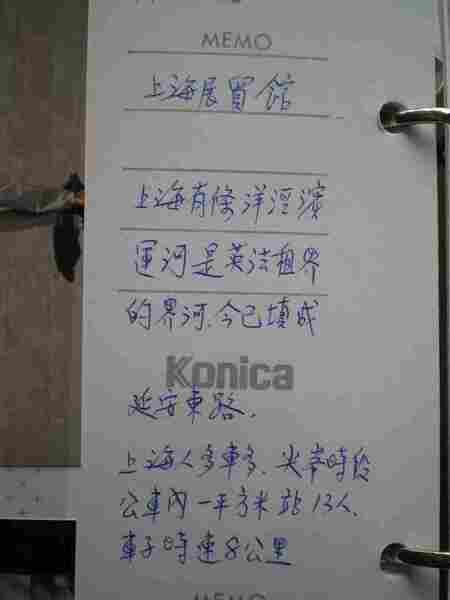 MEMO
上海展覽館
上海有條洋涇濱
運河是英法租界
的界河.今已填成
Konica
延安東路.
上海人多車多.尖峯時段
公車內一平方米站13人.
車子時速8公里
MEMO